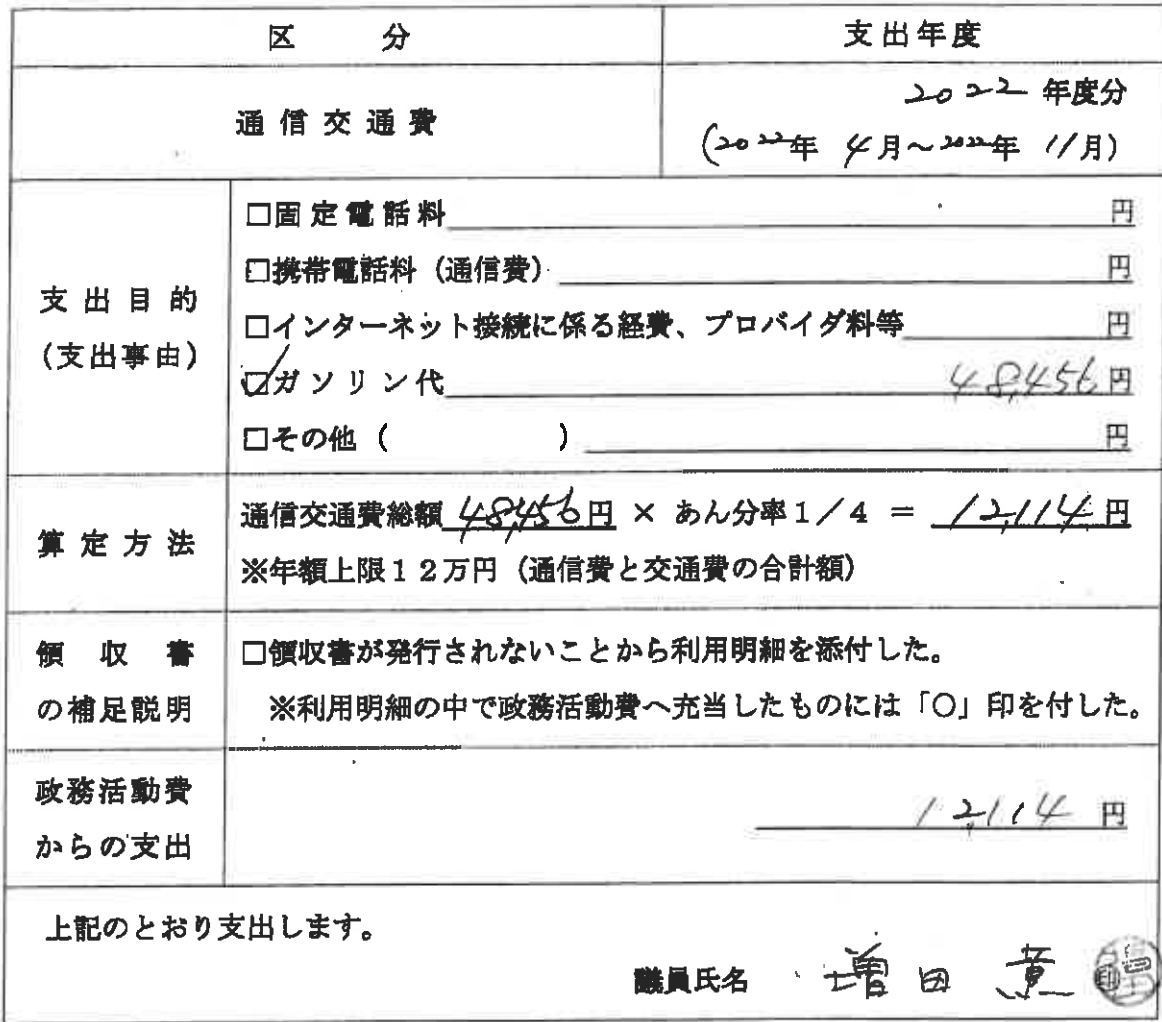 区 分
支出年度
通信交通費
2022 年度分
(2022年 4月～2022年 11月)
支出目的
(支出事由)
□固定電話料 円
□携帯電話料(通信費) 円
□インターネット接続に係る経費、プロバイダ料等 円
☑ガソリン代 48,456円
□その他( ) 円
算定方法
通信交通費総額 48,456円 × あん分率1/4 = 12,114円
※年額上限12万円(通信費と交通費の合計額)
領収書
の補足説明
□領収書が発行されないことから利用明細を添付した。
※利用明細の中で政務活動費へ充当したものには「○」印を付した。
政務活動費
からの支出
12,114 円
上記のとおり支出します。
議員氏名 増田 薫